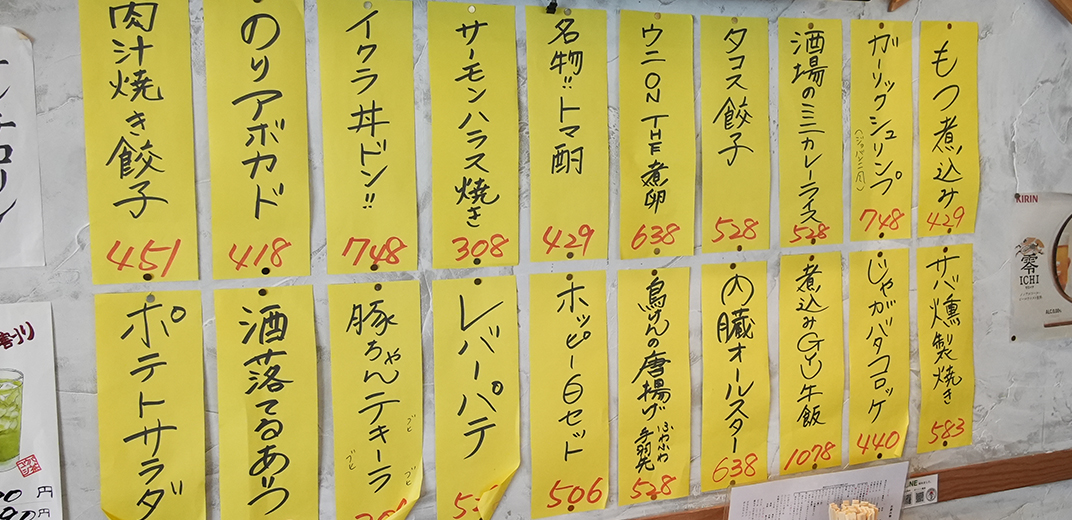 もつ煮込み
429
ガーリックシュリンプ
748
酒場のミニカレーライス
528
タコス餃子
528
ウニON THE煮卵
638
名物!!トマ酎
429
サーモンハラス焼き
308
イクラ丼ドン!!
748
のりアボカド
418
肉汁焼き餃子
451
サバ燻製焼き
583
じゃがバタコロッケ
440
煮込みGYU牛飯
1078
内臓オールスター
638
鳥けんの唐揚げ
ふわふわ
528
ホッピー白セット
506
レバーパテ
豚ちゃんテキーラ
酒落てるあつ
ポテトサラダ
KIRIN
零
ICHI